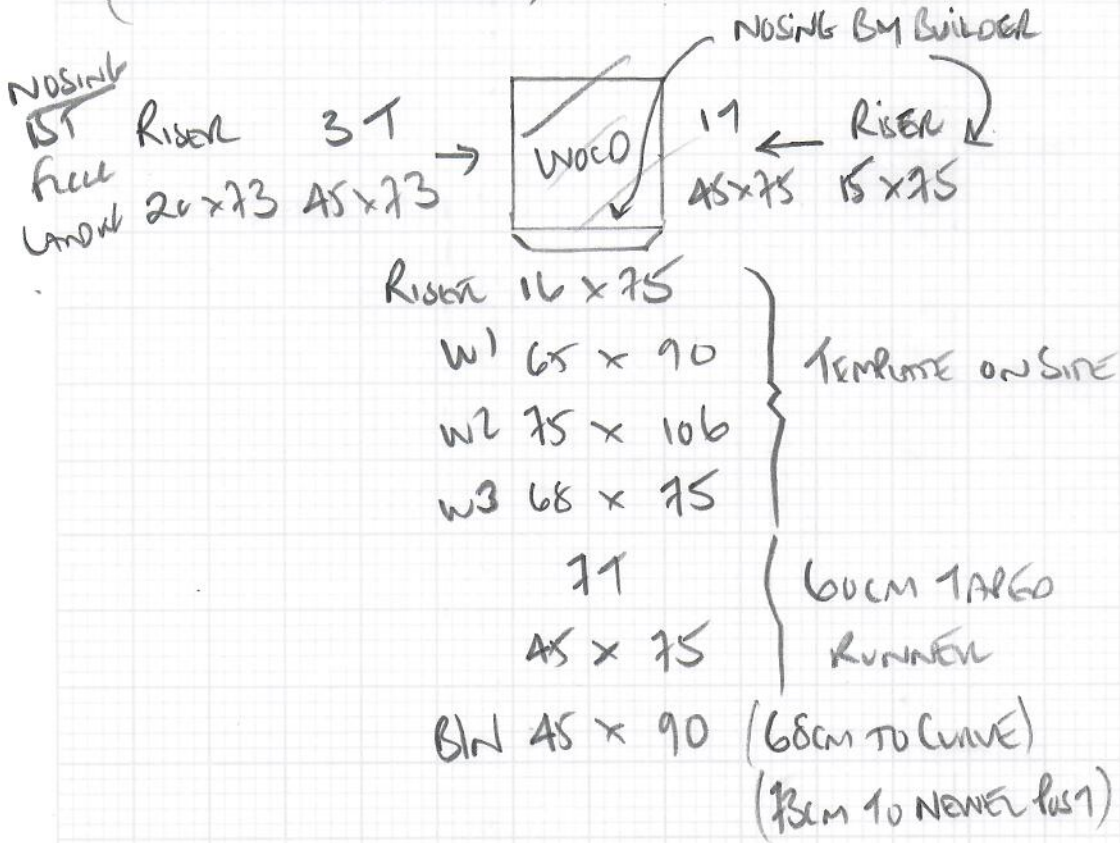 NOSING BY BUILDER
NOSING
1ST
FLOOR
LANDING
RISER 3T
20 x 73 45 x 73
WOOD
1T RISER
45 x 75 15 x 75
RISER 16 x 75
W1 65 x 90
W2 75 x 106
W3 68 x 75
TEMPLATE ON SITE
7T
45 x 75
60CM TAPED
RUNNER
B/N 45 x 90 (68CM TO CURVE)
(73CM TO NEWEL POST)